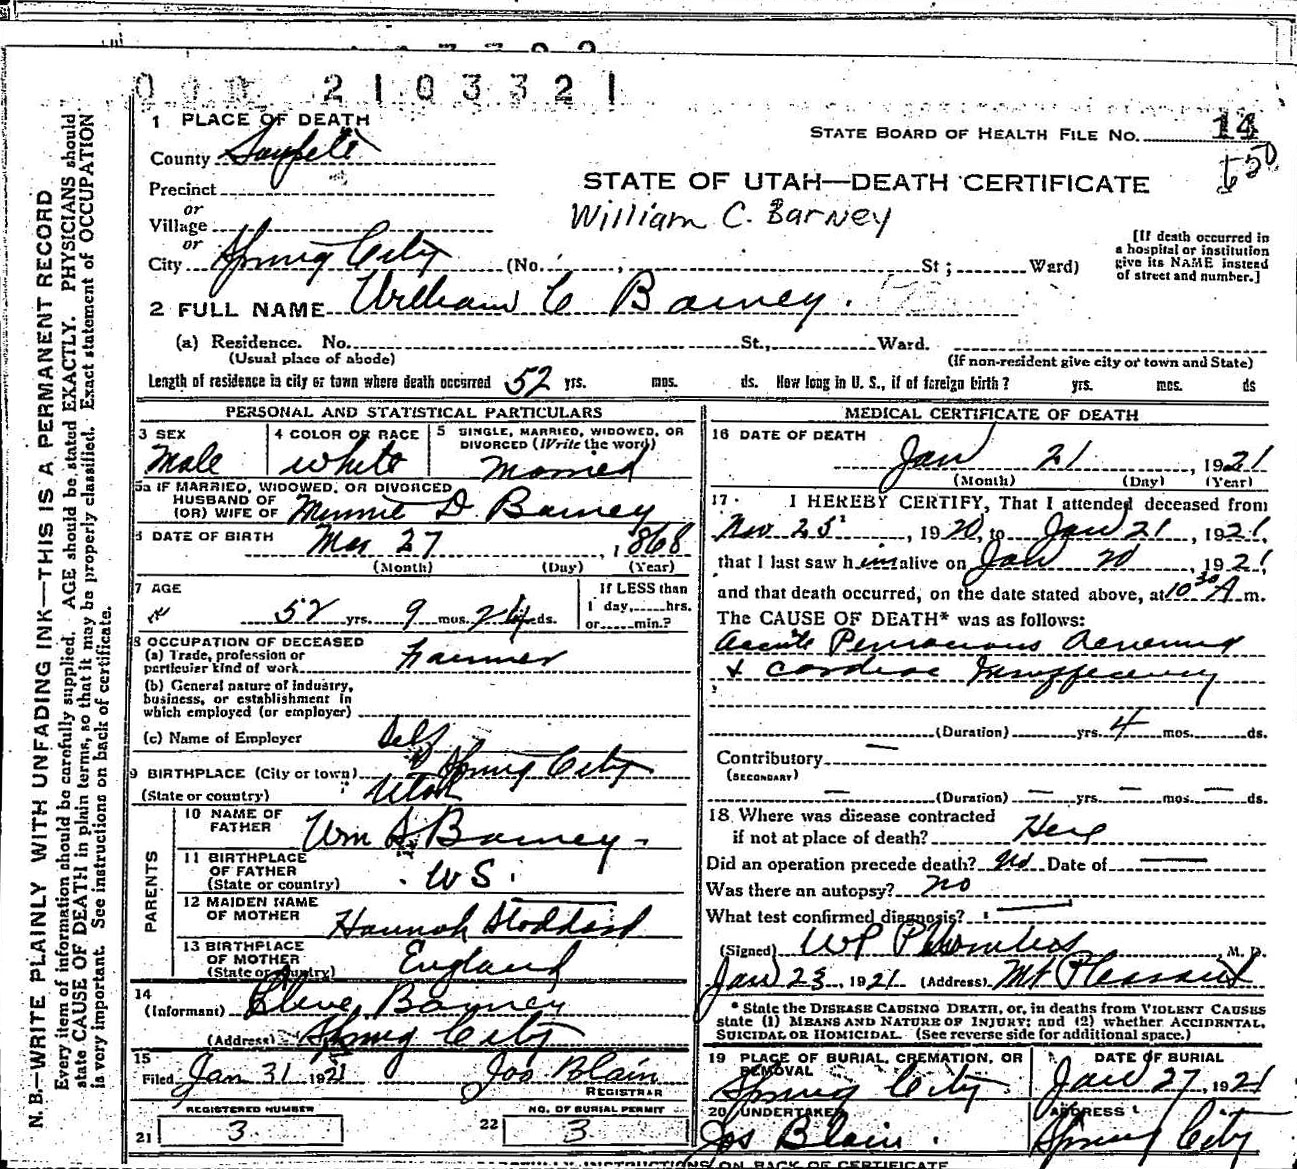 2103321
1 PLACE OF DEATH
STATE BOARD OF HEALTH FILE NO. 14
County Sanpete
550
Precinct
STATE OF UTAH—DEATH CERTIFICATE
or
William C. Barney
Village
or
City Spring City (No. , St ; Ward)
[If death occurred in
a hospital or institution
give its NAME instead
of street and number.]
2 FULL NAME William C Barney.
(a) Residence. No. St., Ward.
(Usual place of abode) (If non-resident give city or town and State)
Length of residence in city or town where death occurred 52 yrs. mos. ds. How long in U. S., if of foreign birth? yrs. mos. ds
PERSONAL AND STATISTICAL PARTICULARS
3 SEX
Male
4 COLOR OR RACE
White
5 SINGLE, MARRIED, WIDOWED, OR
DIVORCED (Write the word)
Married
5a IF MARRIED, WIDOWED, OR DIVORCED
HUSBAND OF
(OR) WIFE OF Minnie D. Barney
6 DATE OF BIRTH Mar 27, 1868
(Month) (Day) (Year)
7 AGE
52 yrs. 9 mos. 24 ds.
If LESS than
1 day, hrs.
or min.?
8 OCCUPATION OF DECEASED
(a) Trade, profession or
particular kind of work Farmer
(b) General nature of industry,
business, or establishment in
which employed (or employer)
(c) Name of Employer Self
9 BIRTHPLACE (City or town) Spring City
(State or country) Utah
PARENTS
10 NAME OF
FATHER Wm S. Barney
11 BIRTHPLACE
OF FATHER
(State or country) US.
12 MAIDEN NAME
OF MOTHER Hannah Stoddard
13 BIRTHPLACE
OF MOTHER
(State or country) England
14
(Informant) Cleve Barney
(Address) Spring City
15
Filed Jan 31 1921 Jos Blain
REGISTRAR
REGISTERED NUMBER
21 3
NO. OF BURIAL PERMIT
22 3
MEDICAL CERTIFICATE OF DEATH
16 DATE OF DEATH
Jan 21, 1921
(Month) (Day) (Year)
17 I HEREBY CERTIFY, That I attended deceased from
Nov 25, 1920, to Jan 21, 1921,
that I last saw him alive on Jan 20, 1921,
and that death occurred, on the date stated above, at 10 30 A m.
The CAUSE OF DEATH* was as follows:
Acute Pernicious Aenemia
& Cardiac Insuffeciency
(Duration) yrs. 4 mos. ds.
Contributory —
(SECONDARY)
— (Duration) — yrs. — mos. — ds.
18 Where was disease contracted
if not at place of death? Here
Did an operation precede death? No Date of —
Was there an autopsy? no
What test confirmed diagnosis? —
(Signed) W P M. D.
Jan 23, 1921 (Address) Mt Pleasant
* State the DISEASE CAUSING DEATH, or, in deaths from VIOLENT CAUSES
state (1) MEANS AND NATURE OF INJURY; and (2) whether ACCIDENTAL,
SUICIDAL OR HOMICIDAL. (See reverse side for additional space.)
19 PLACE OF BURIAL, CREMATION, OR
REMOVAL
Spring City
DATE OF BURIAL
Jan 27, 1921
20 UNDERTAKER
Jos Blain.
ADDRESS
Spring City
N. B.—WRITE PLAINLY WITH UNFADING INK—THIS IS A PERMANENT RECORD
Every item of information should be carefully supplied. AGE should be stated EXACTLY. PHYSICIANS should
state CAUSE OF DEATH in plain terms, so that it may be properly classified. Exact statement of OCCUPATION
is very important. See instructions on back of certificate.
INSTRUCTIONS ON BACK OF CERTIFICATE